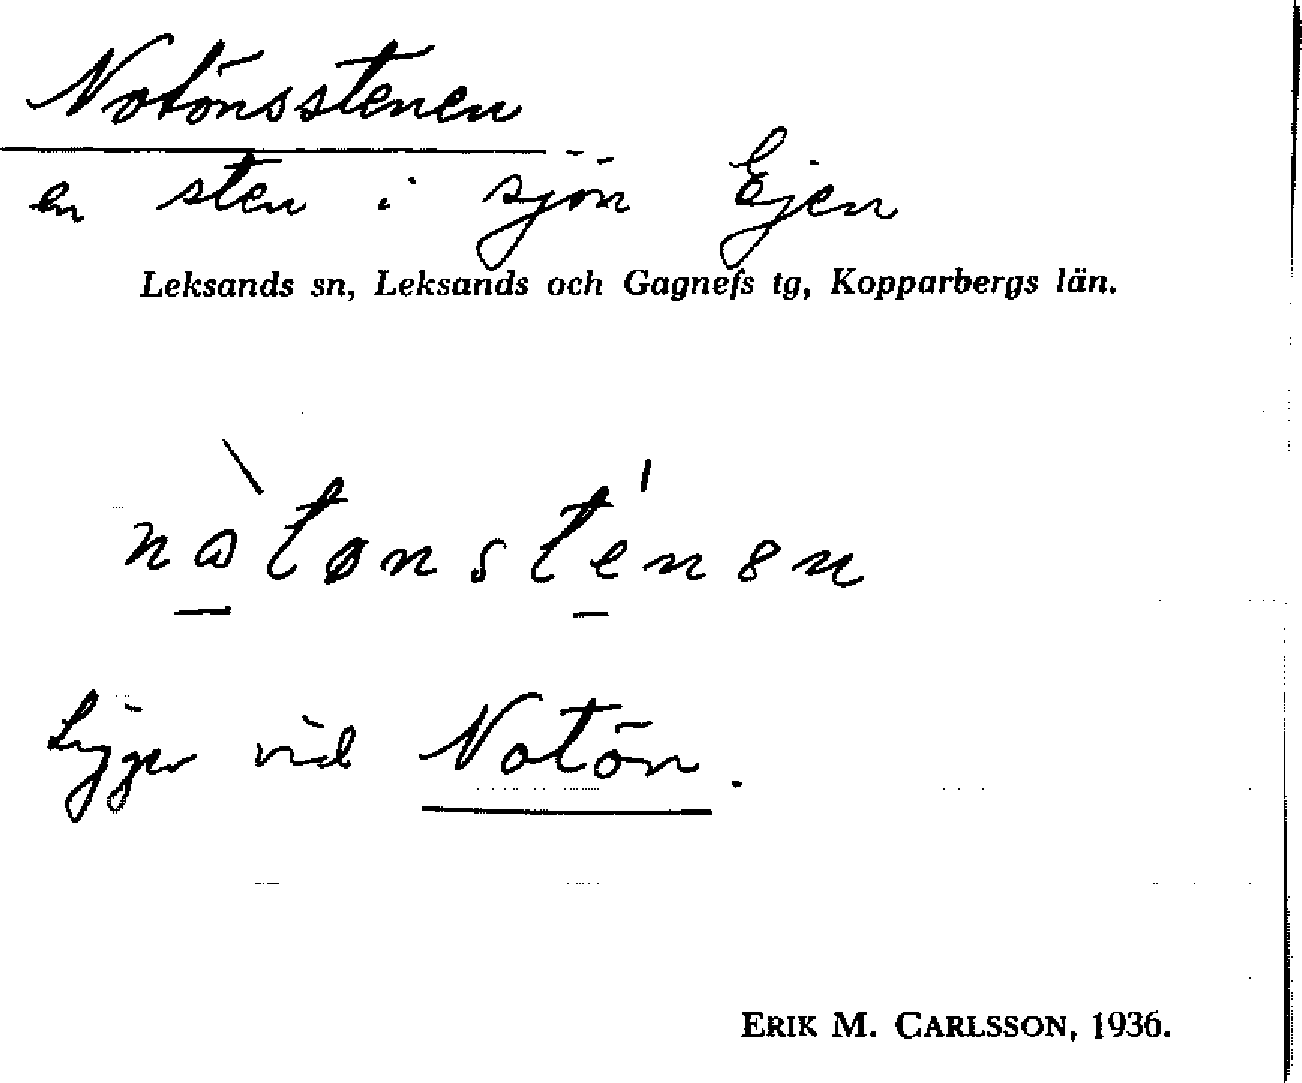 Notönsstenen
en sten i sjön Ejen
Leksands sn, Leksands och Gagnefs tg, Kopparbergs län.
Ligger vid Notön.
ERIK M. CARLSSON, 1936.